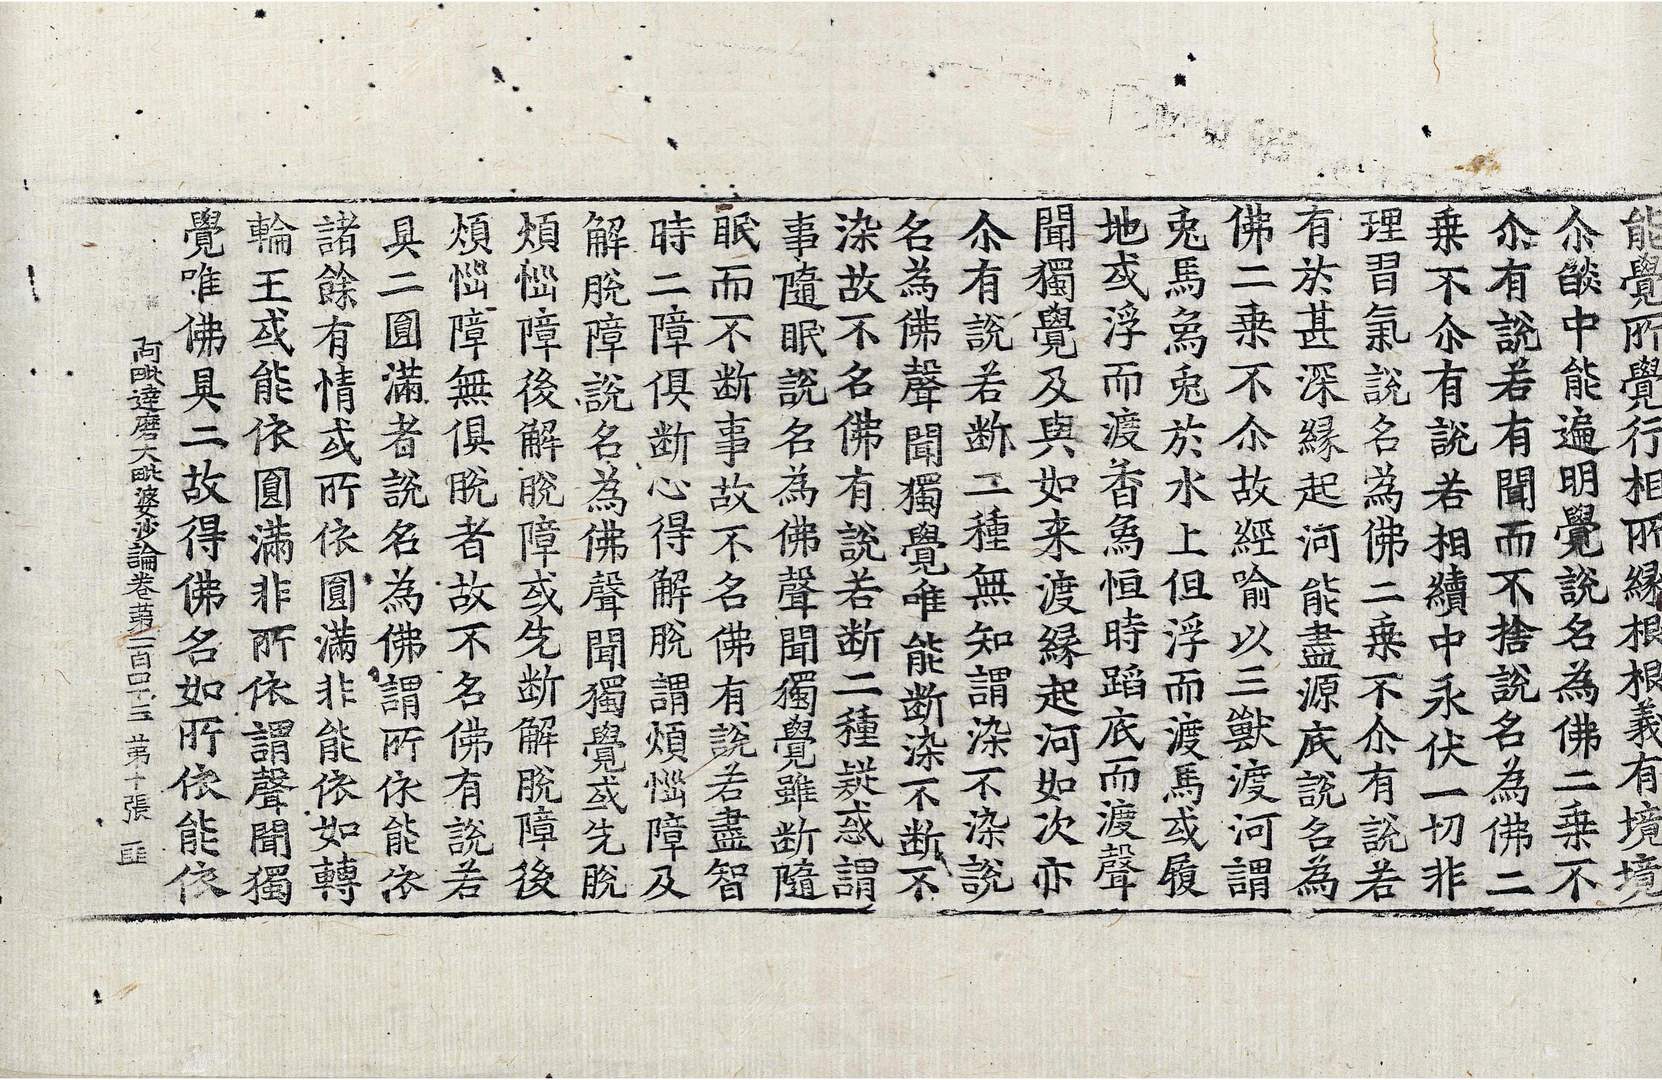 能覺所覺行相所緣根根義有境境
尒燄中能遍明覺說名為佛二乗不
尒有說若有聞而不捨說名為佛二
乗不尒有說若相續中永伏一切非
理習氣說名為佛二乗不尒有說若
有於甚深緣起河能盡源底說名為
佛二乗不尒故經喻以三獸渡河謂
兎馬𤉢兎於水上但浮而渡馬或履
地或浮而渡香𤉢恒時蹈底而渡聲
聞獨覺及與如来渡緣起河如次亦
尒有說若断二種無知謂染不染說
名為佛聲聞獨覺唯能断染不断不
染故不名佛有說若断二種疑惑謂
事隨眠說名為佛聲聞獨覺雖断隨
眠而不断事故不名佛有說若盡智
時二障俱断心得解脫謂煩惱障及
解脫障說名為佛聲聞獨覺或先脫
煩惱障後解脫障或先断解脫障後
煩惱障無俱脫者故不名佛有說若
具二圓滿者說名為佛謂所依能依
諸餘有情或所依圓滿非能依如轉
輪王或能依圓滿非所依謂聲聞獨
覺唯佛具二故得佛名如所依能依
阿毗達磨大毗婆沙論卷苐一百四十三 苐十張 匪